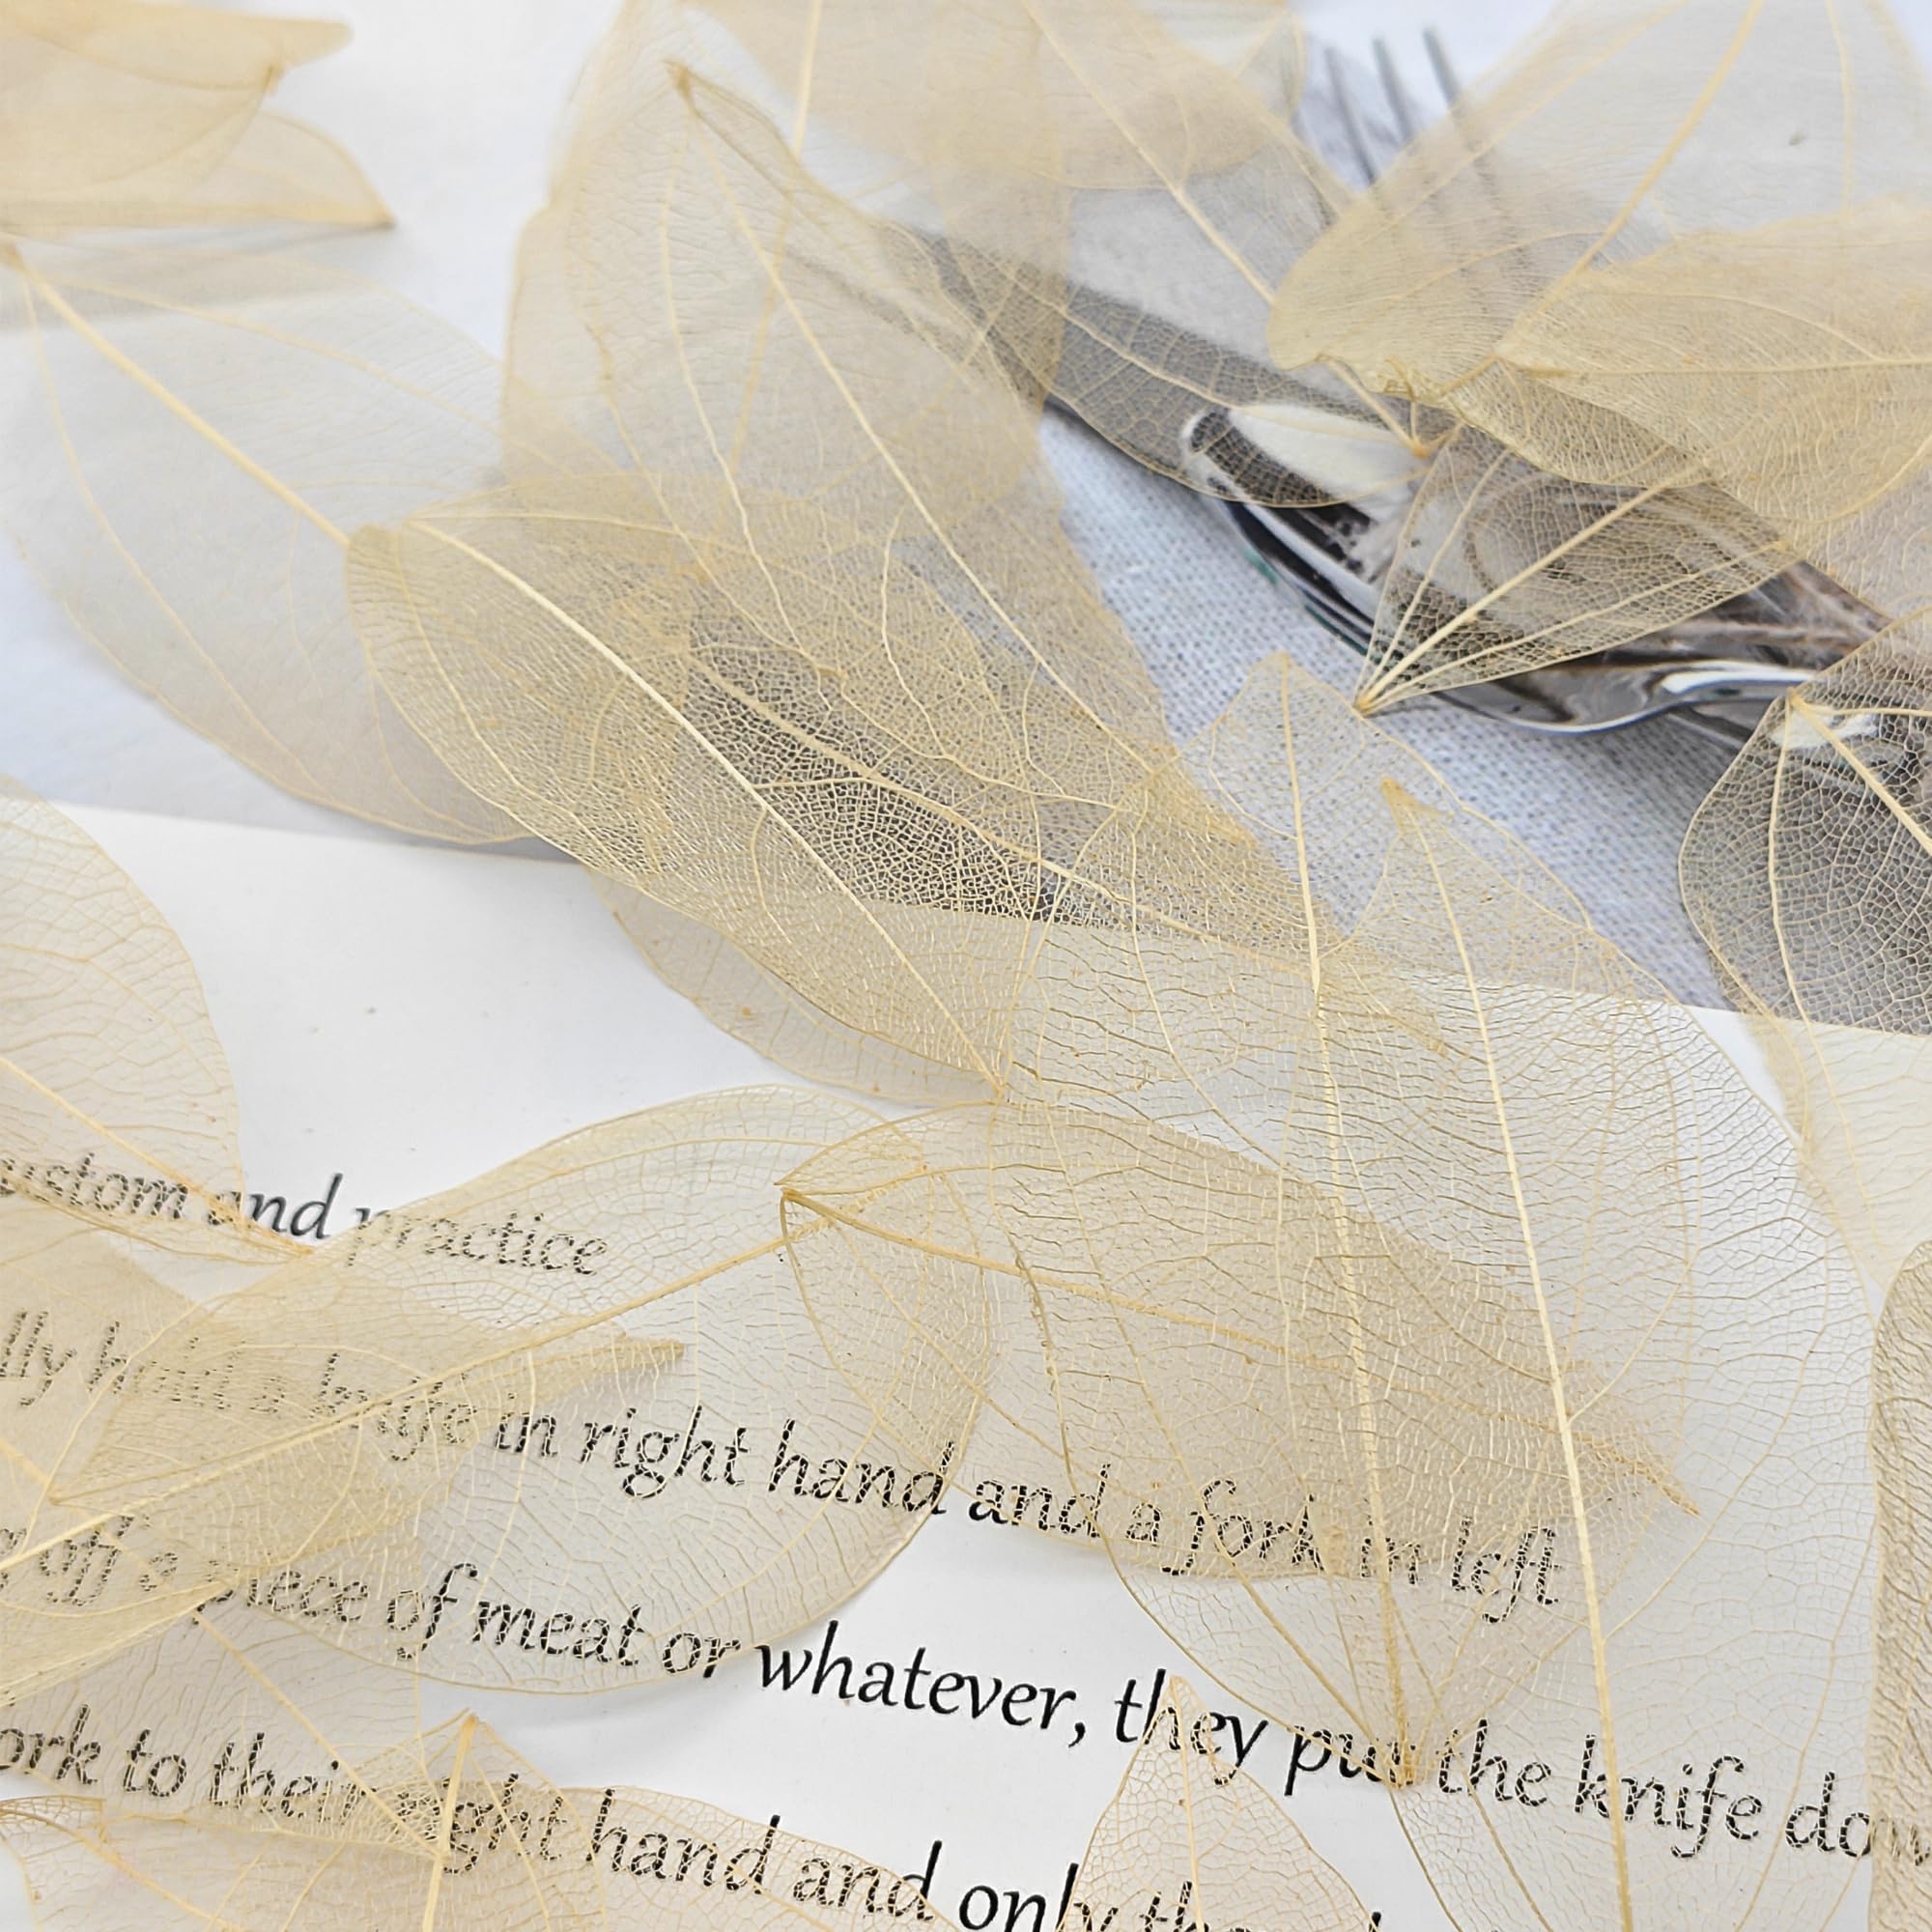 ustom and practice
lly hold a knife in right hand and a fork in left
g off a piece of meat or whatever, they put the knife dow
ork to their right hand and only the